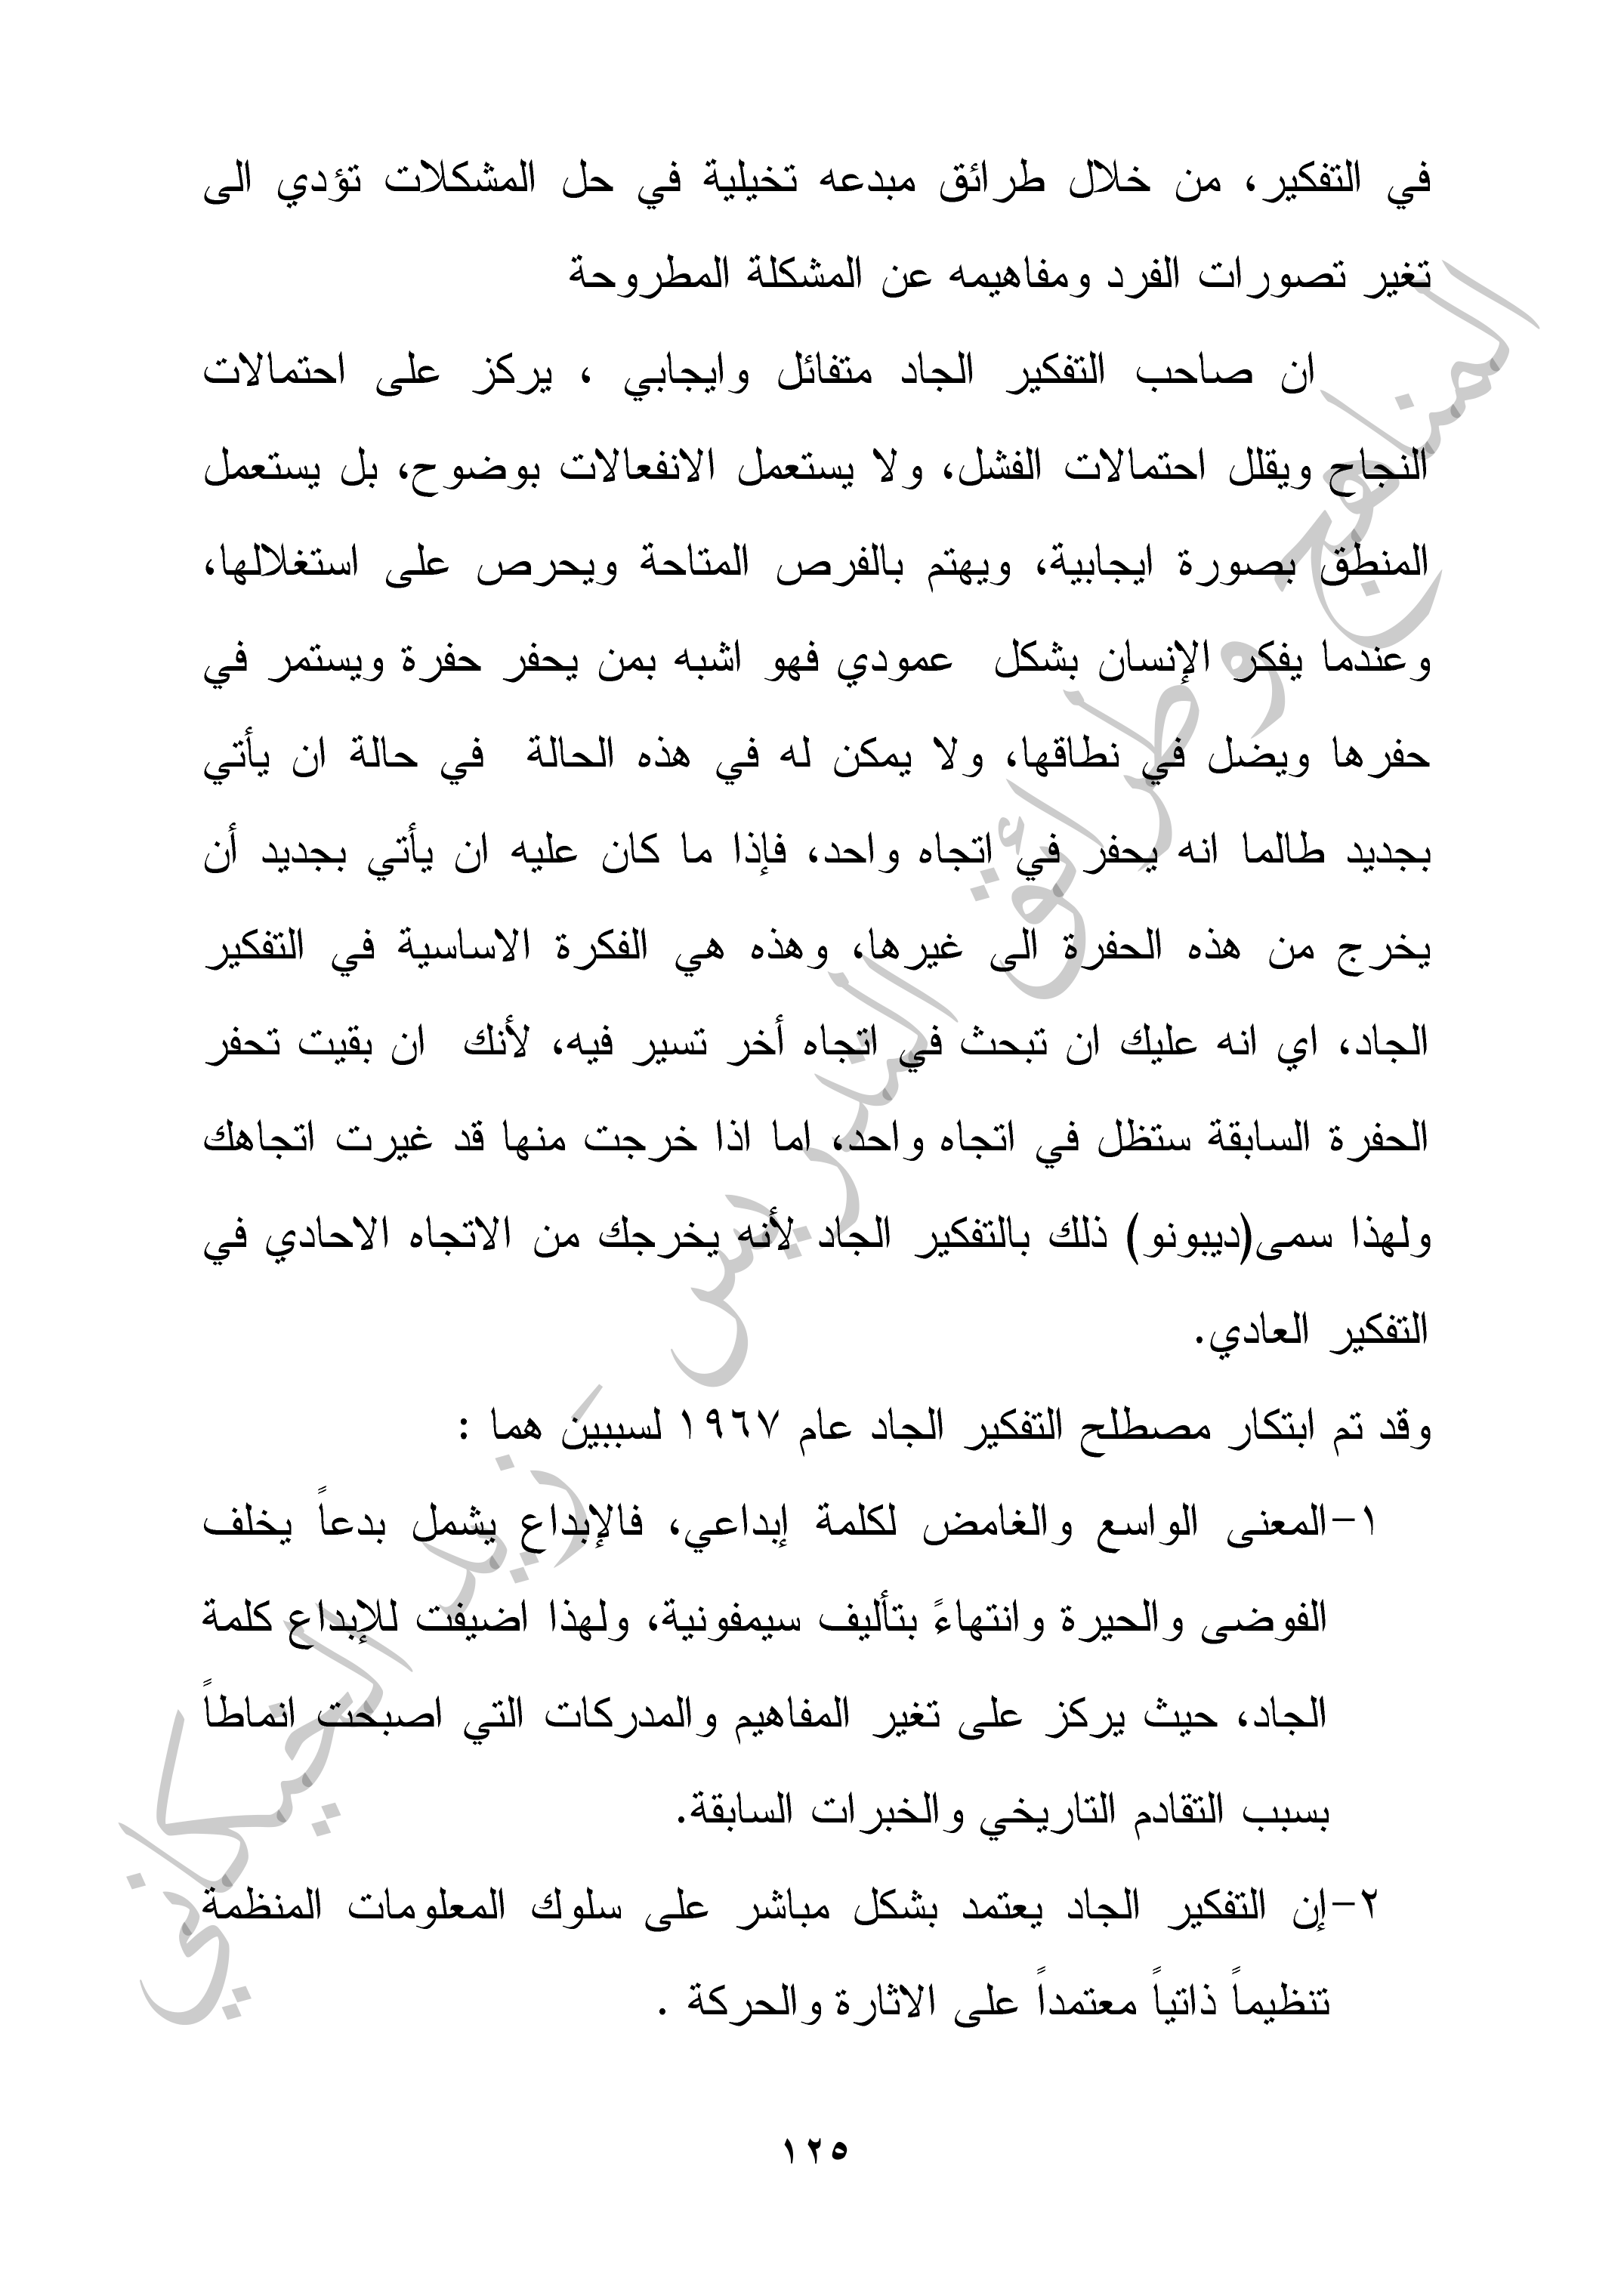 في التفكير، من خلال طرائق مبدعه تخيلية في حل المشكلات تؤدي الى
تغير تصورات الفرد ومفاهيمه عن المشكلة المطروحة
ان صاحب التفكير الجاد متفائل وايجابي ، يركز على احتمالات
النجاح ويقلل احتمالات الفشل، ولا يستعمل الانفعالات بوضوح، بل يستعمل
المنطق بصورة ايجابية، ويهتم بالفرص المتاحة ويحرص على استغلالها،
وعندما يفكر الإنسان بشكل عمودي فهو اشبه بمن يحفر حفرة ويستمر في
حفرها ويضل في نطاقها، ولا يمكن له في هذه الحالة في حالة ان يأتي
بجديد طالما انه يحفر في اتجاه واحد، فإذا ما كان عليه ان يأتي بجديد أن
يخرج من هذه الحفرة الى غيرها، وهذه هي الفكرة الاساسية في التفكير
الجاد، اي انه عليك ان تبحث في اتجاه أخر تسير فيه، لأنك ان بقيت تحفر
الحفرة السابقة ستظل في اتجاه واحد، اما اذا خرجت منها قد غيرت اتجاهك
ولهذا سمى(ديبونو) ذلك بالتفكير الجاد لأنه يخرجك من الاتجاه الاحادي في
التفكير العادي.
وقد تم ابتكار مصطلح التفكير الجاد عام ١٩٦٧ لسببين هما :
١-المعنى الواسع والغامض لكلمة إبداعي، فالإبداع يشمل بدعاً يخلف
الفوضى والحيرة وانتهاءً بتأليف سيمفونية، ولهذا اضيفت للإبداع كلمة
الجاد، حيث يركز على تغير المفاهيم والمدركات التي اصبحت انماطاً
بسبب التقادم التاريخي والخبرات السابقة.
٢-إن التفكير الجاد يعتمد بشكل مباشر على سلوك المعلومات المنظمة
تنظيماً ذاتياً معتمداً على الاثارة والحركة .
١٢٥
المناهج وطرائق التدريس _ زيد الخيكاني